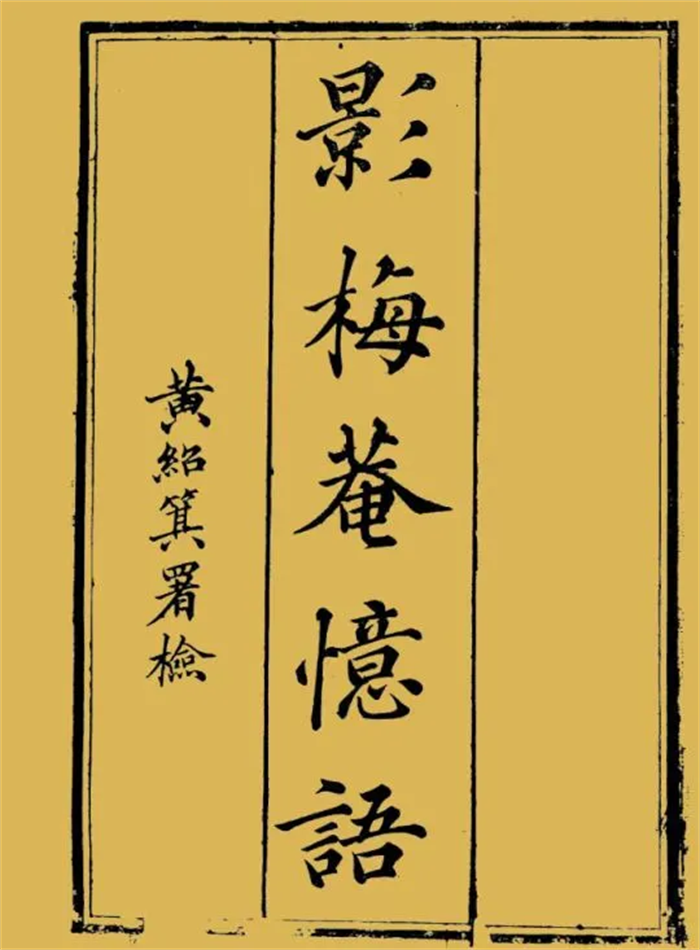 影梅菴憶語
黄紹箕署檢